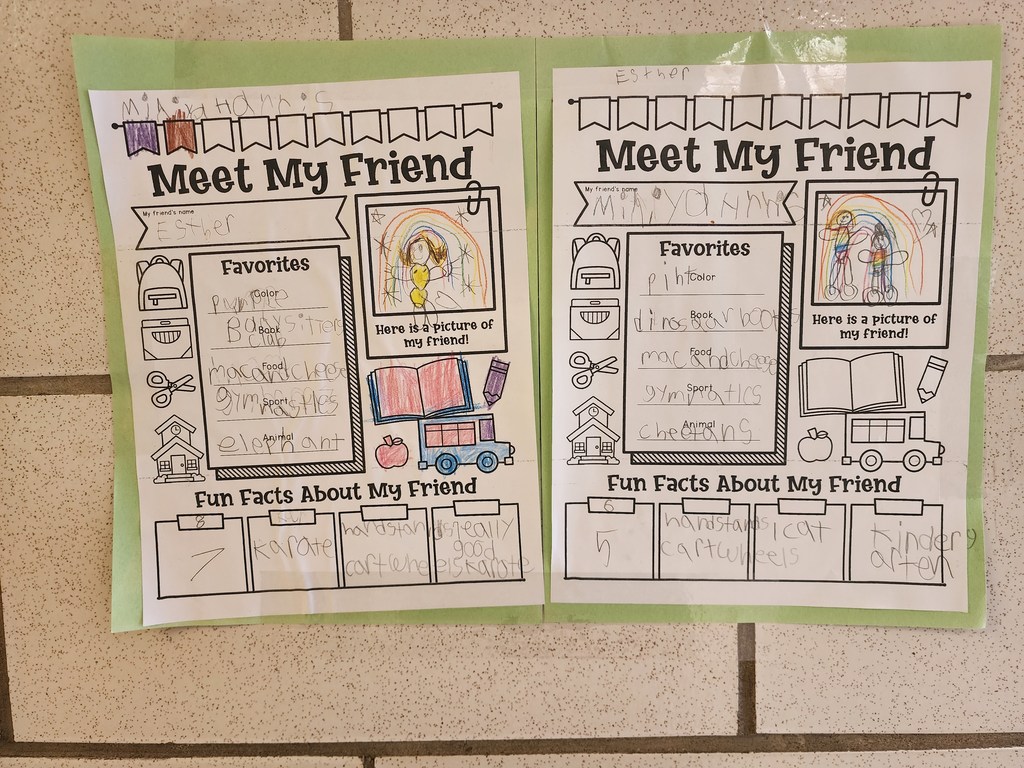 Esther
Meet My Friend
My friend's name
Esther
Favorites
Color
purple
Book
Babysitters
Club
Food
macandcheese
Sport
gymnastics
Animal
elephant
Here is a picture of
my friend!
Fun Facts About My Friend
8
7
karate
handstands
cartwheels
really
good
karate
Meet My Friend
My friend's name
Favorites
pink
Color
Book
dinosaur books
Food
macandcheese
Sport
gymnatics
Animal
cheetahs
Here is a picture of
my friend!
Fun Facts About My Friend
6
5
handstands
cartwheels
1 cat
kinderg
arten